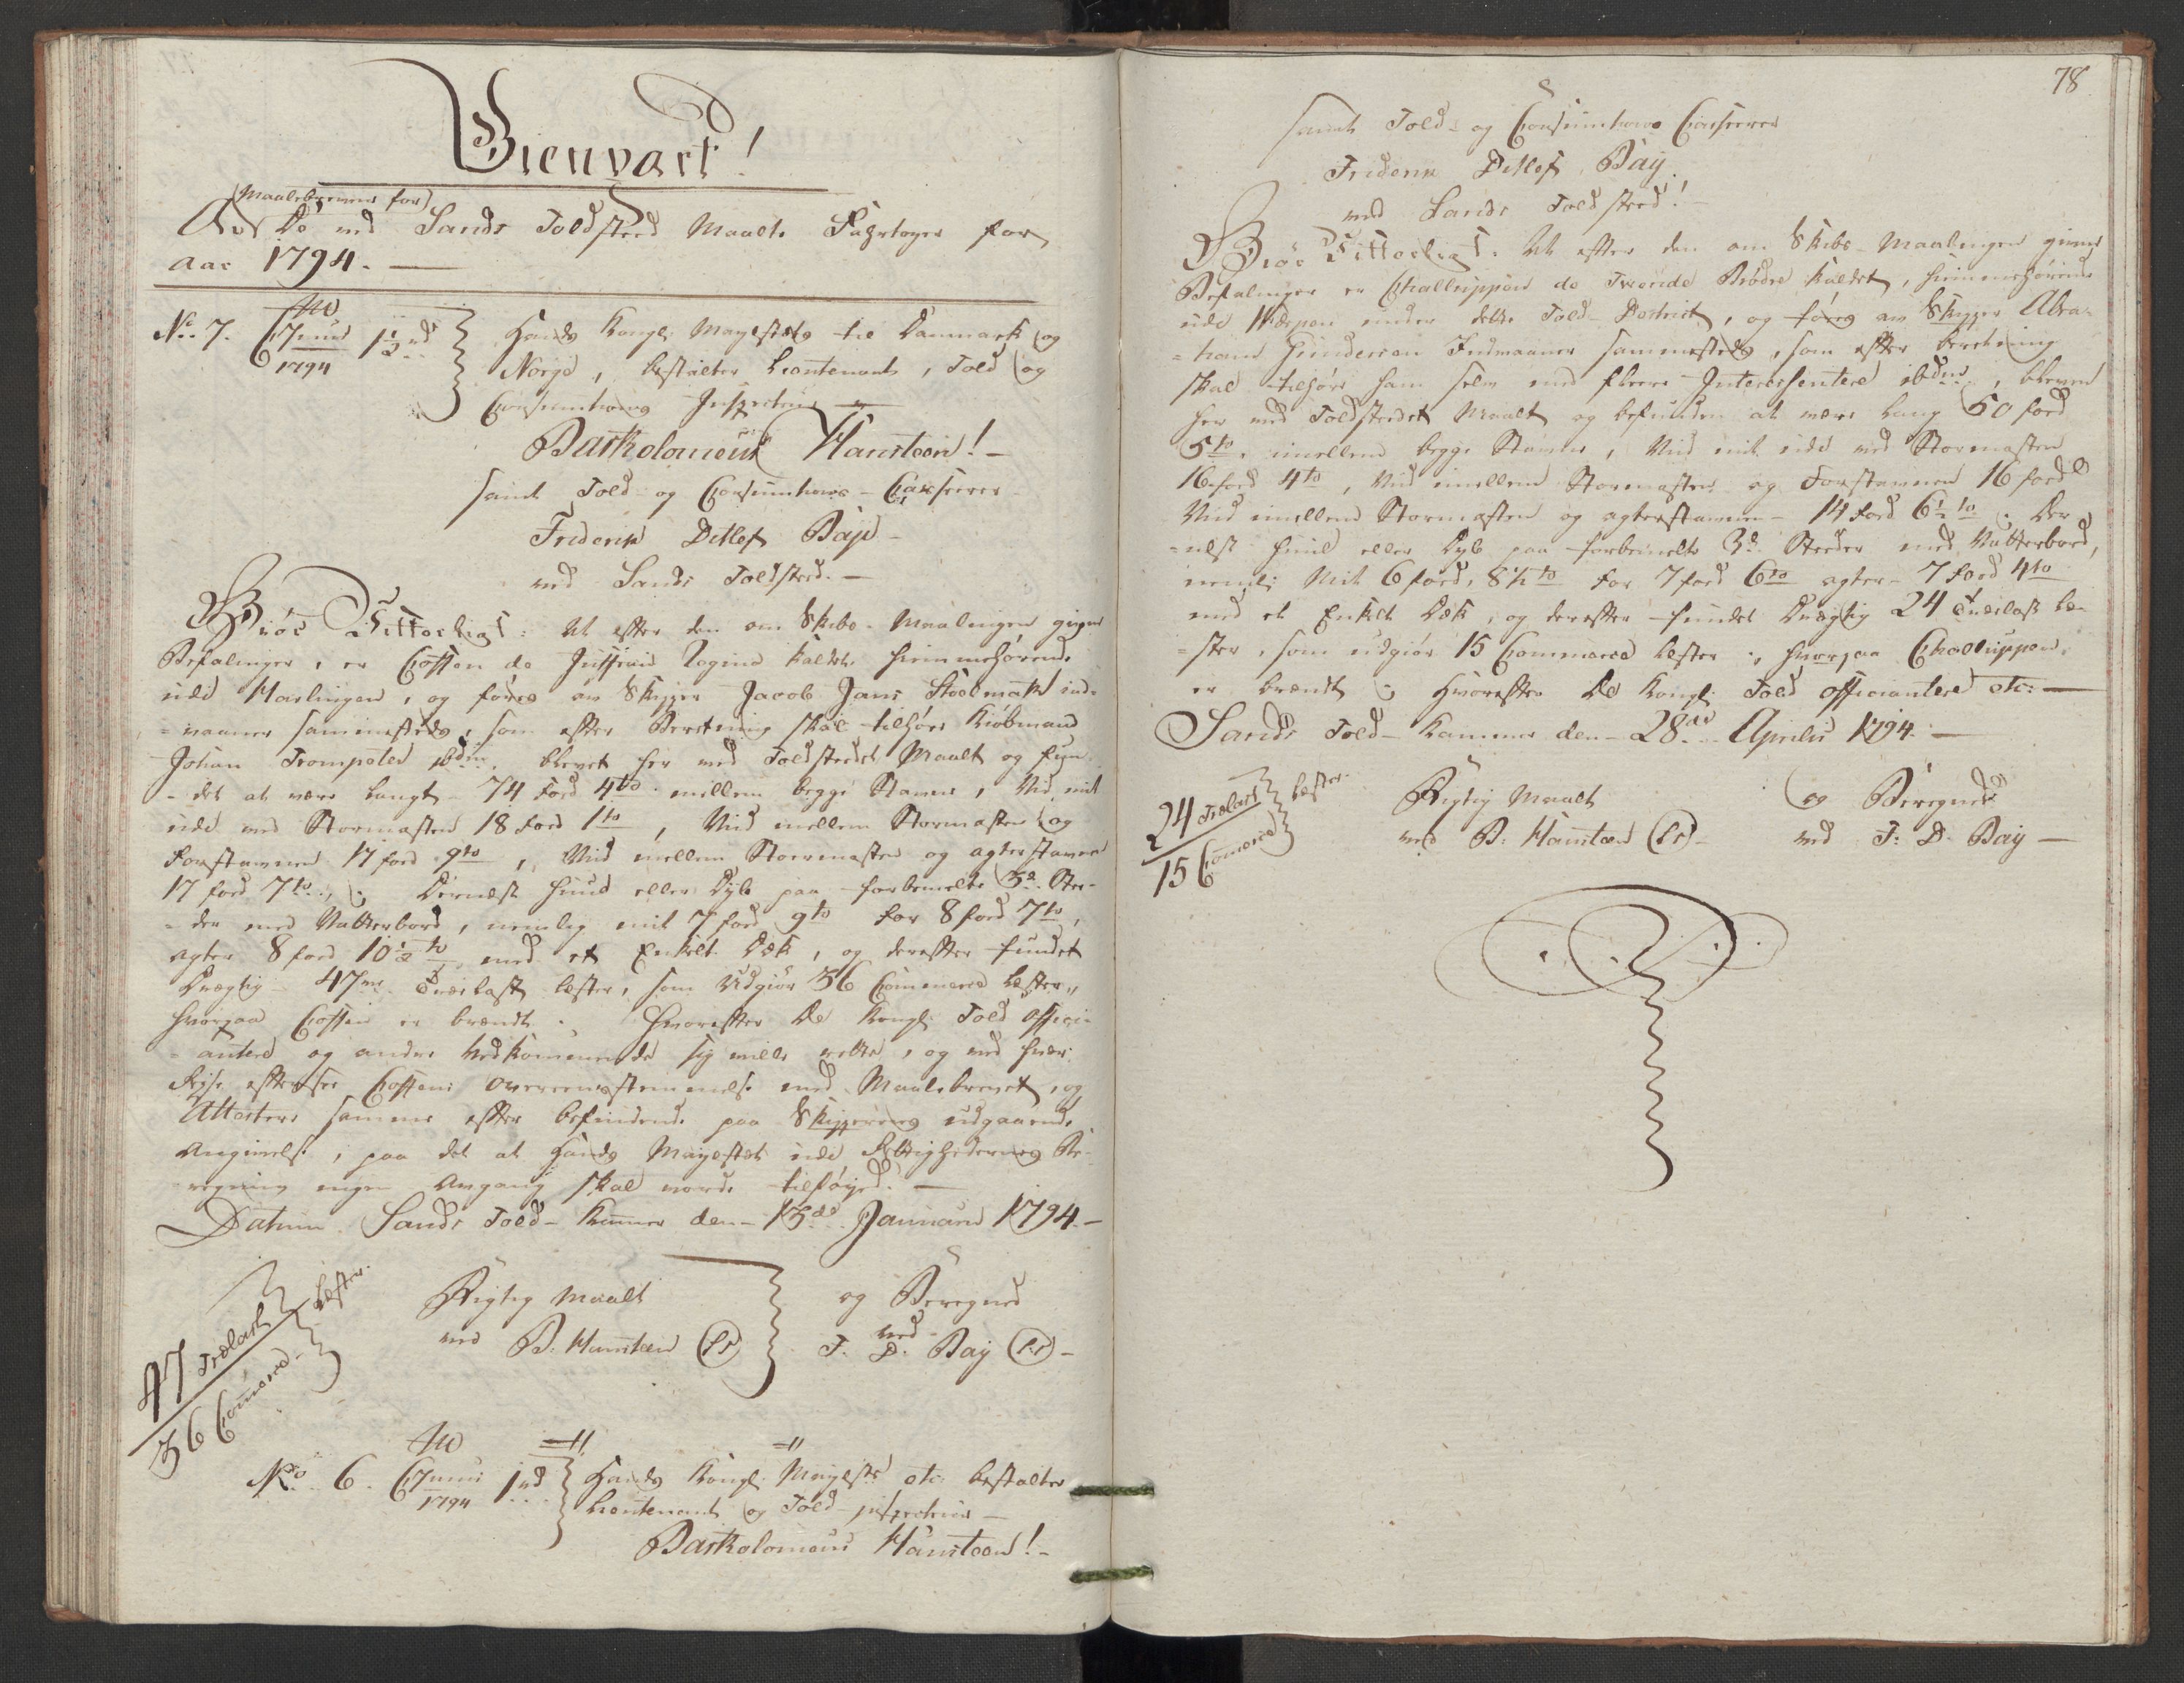 Gienpart!
Maalebrevene for
Av De ved Sands Toldsted Maalte Fartøyer for
Aar 1794.
No. 7. 1794 1½
Hands Kongl: Mayestæts til Danmark og
Norge, bestalter Lieutenant, Told og
Consumtions Inspecteur
Bartholomeus Hansteen!
samt Told- og Consumtions-Casserer
Friderik Ditlef Bay
ved Sands Toldsted.
Giør Vitterligt: At efter den om Skibs-Maalingen givne
Befalinger, er Coffen de Juffrau Regina kaldet hiemmehørende
udi Harlingen, og føres av Skipper Jacob Jans Stoelmak ind-
=vaaner sammesteds, som efter Beretning skal tilhøre Kiøbmand
Johan Trompeted ibdm, blevet her ved Toldstedet Maalt og fun-
=det at være Langt 74 Fod 4to mellem begge Stavne, Vid mit
udi ved Stormasten 18 Fod 1to, Vid mellem Stormasten og
Forstavnen 17 fod 9to, Vid mellem Stormasten og agterstavnen
17 fod 7to. Dernæst Huul eller Dyb paa forbemelte 3de Ste-
=der med Vatterbord, nemlig mit 7 fod 9to For 8 fod 7to,
agter 8 fod 10½to med et Enkelt Dæk, og derefter fundet
Drægtig 47 Trælast Læster, som Udgiør 36 Commerce Læster,
hvorpaa Coffen er brændt. Hvorefter De Kongl: Told Offici-
=anter og andre Vedkommende sig ville rette, og ved hver
Reise efterse Coffens Overeensstemmelse med Maalebrevet, og
Attestere samme efter befindende paa Skipperens udgaaende
Angivelse, paa det at Hands Mayestæt udi Rettighedernes Be-
regning ingen Avgang skal vorde tilføyed.
Datum Sands Told-Kammer den 13de Januarii 1794.
47 Trælast
36 Commerce
Læster.
Rigtig Maalt
ved B. Hansteen (LS)
og Beregned
ved
F. D. Bay (LS)
No. 6. 1794 1
Hands Kongl: Mayests etc: bestalter
Lieutenant og Told-inspecteur
Bartholomeus Hansteen!
78
samt Told- og Consumtions Casserer
Friderik Ditlef Bay
ved Sands Toldsted!
Giør Vitterligt: At efter den om Skibs-Maalingen givne
Befalinger er Challuppen de Tvende Brødre kaldet, hiemmehørende
udi under dette Told-District, og føres av Skipper Abra-
=ham Gundersen Indvaaner sammesteds, som efter beretning
skal tilhøre ham selv med flere Interessentere ibdm, bleven
her ved Toldstedet Maalt og befunden at være Lang 50 fod
5to imellem begge Stavne, Vid mit udi ved Stormasten
16 fod 4to, Vid imellem Stormasten og Forstavnen 16 fod
Vid imellem Stormasten og agterstavnen 14 Fod 6½to. Der-
=næst Huul eller Dyb paa forbemelte 3de Steder med Vatterbord,
neml: Mit 6 fod, 8½to For 7 fod 6to agter 7 fod 4to
med et Enkelt Dæk, og derefter fundet Drægtig 24 Trælast Læ-
=ster, som udgiør 15 Commerce Læster, hvorpaa Challuppen
er brændt. Hvorefter De Kongl: Told Officiantere etc:
Sands Told-Kammer den 28de Aprilis 1794.
24 Trælast
15 Commerce
Læster.
Rigtig Maalt
ved B: Hansteen (LS)
og Beregned
ved F: D: Bay